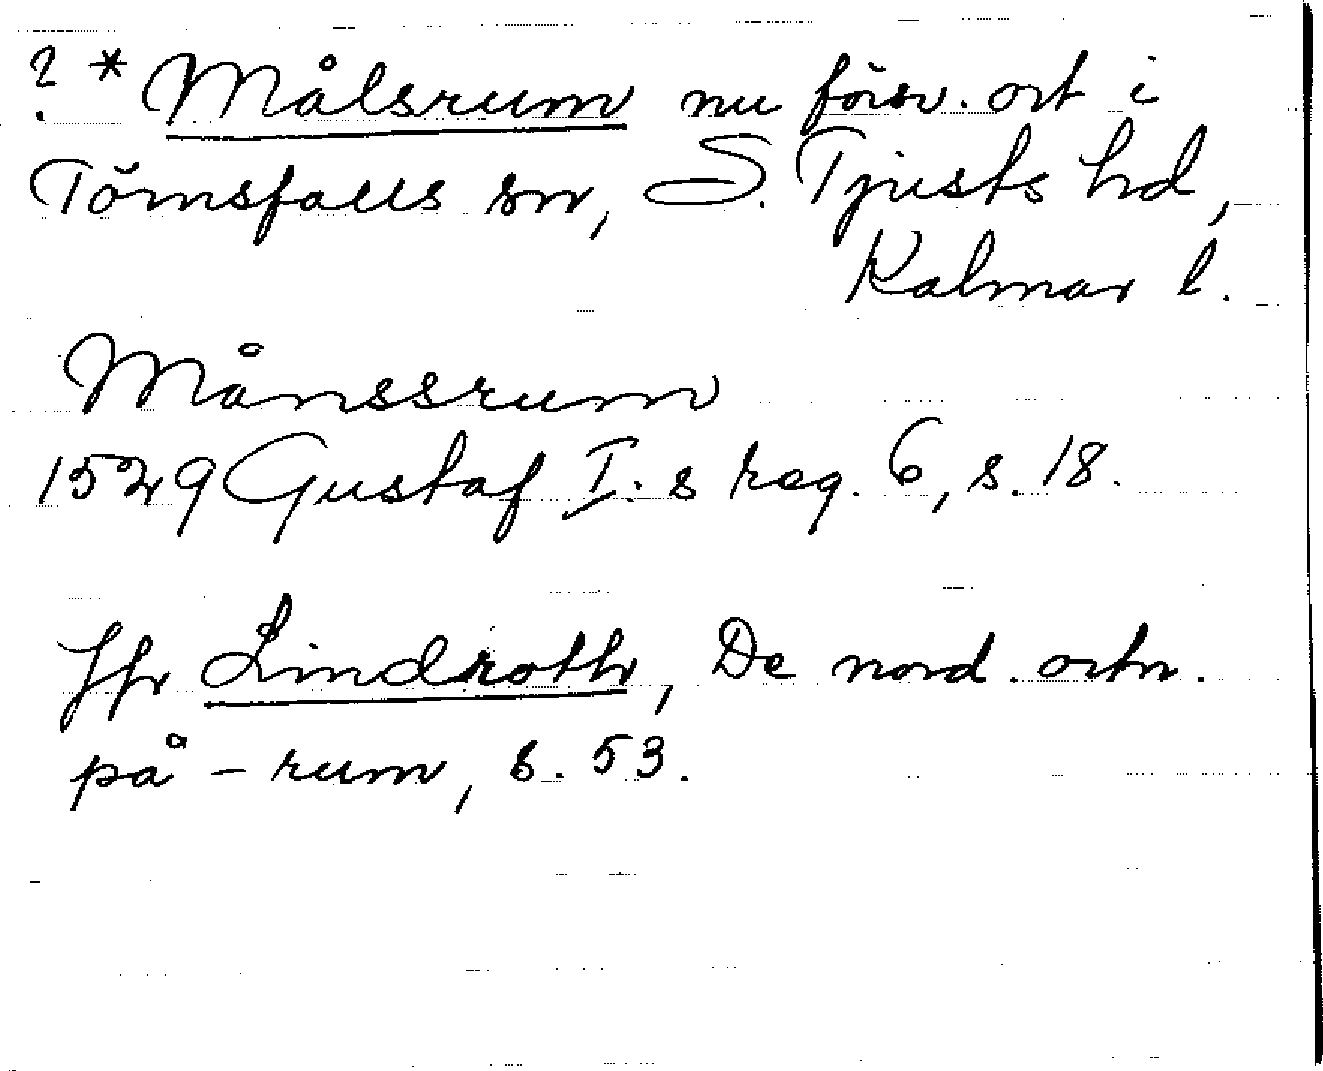 ? * Målsrum nu försv. ort i
Törnsfalls sn, S. Tjusts hd,
Kalmar l.
Månssrum
1529 Gustaf I.s reg. 6, s. 18.
Jfr Lindroth, De nord. ortn.
på -rum, s. 53.